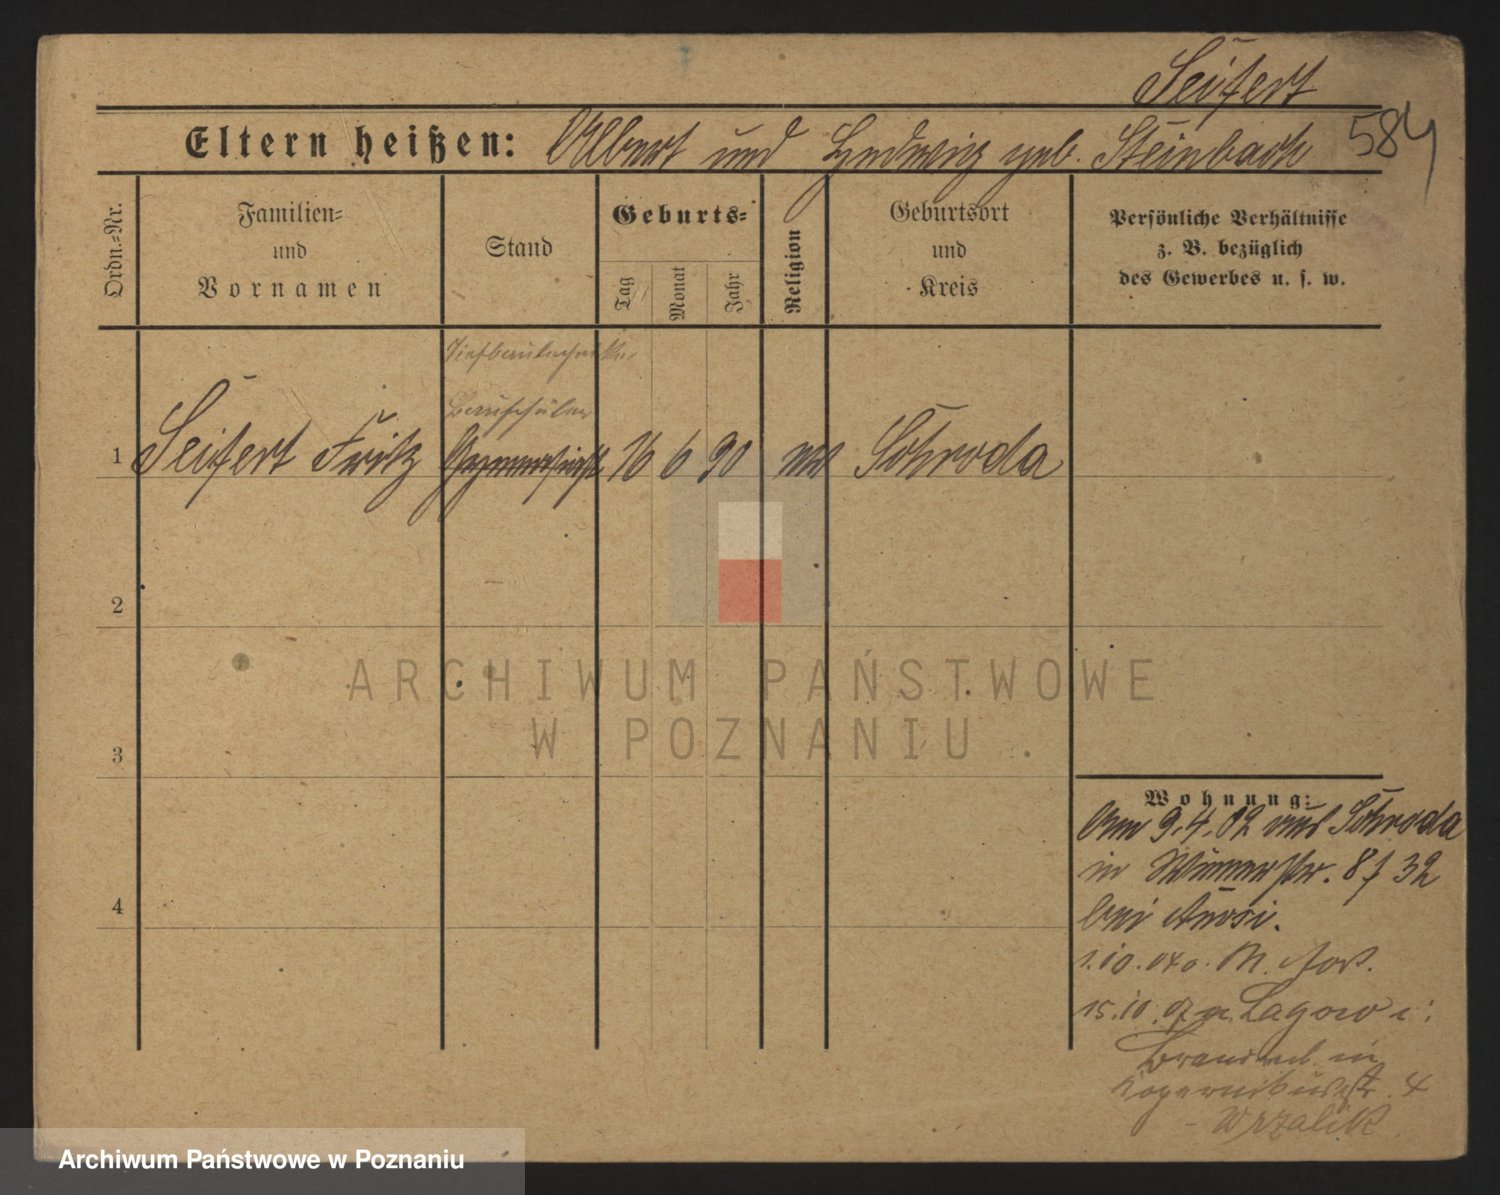 Seifert
Eltern heißen: Albert und Hedwig geb. Steinbach 584
Ordn.-Nr.
Familien-
und
Vornamen
Stand
Geburts-
Tag
Monat
Jahr
Religion
Geburtsort
und
Kreis
Persönliche Verhältnisse
z. B. bezüglich
des Gewerbes u. s. w.
Tiefbautechniker
Bauschüler
1 Seifert Fritz Gymnasiast 16 6 90 ev Schroda
2
3
4
Wohnung:
Am 9.4.02 aus Schroda
in 32
bei
1.10.
15.10. Lagow i:
Brandenb. in
Kopernikusstr. 4
- Wrzalik
ARCHIWUM PAŃSTWOWE
W POZNANIU
Archiwum Państwowe w Poznaniu